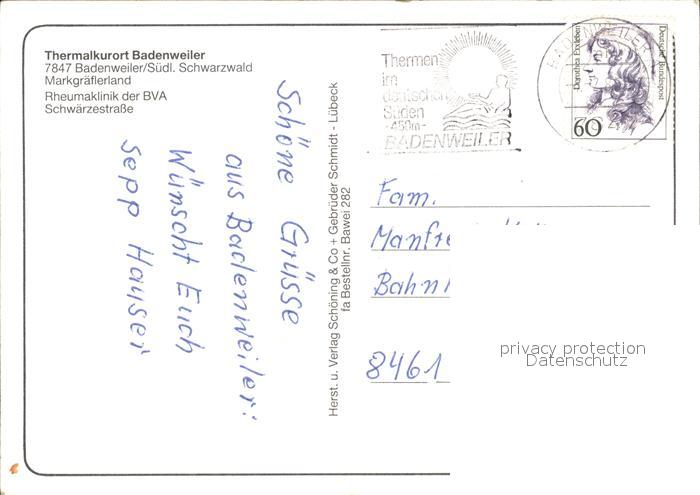 Thermalkurort Badenweiler
7847 Badenweiler/Südl. Schwarzwald
Markgräflerland
Rheumaklinik der BVA
Schwärzestraße
Schöne Grüsse
aus Badenweiler:
Wünscht Euch
Sepp Hauser
Herst. u. Verlag Schöning & Co + Gebrüder Schmidt - Lübeck
fa Bestellnr. Bawei 282
Thermen
im
deutschen
Süden
-450m-
BADENWEILER
BADENWEILER
Dorothea Erxleben
Deutsche Bundespost
60
Fam.
Manfre
Bahn
8461
privacy protection
Datenschutz